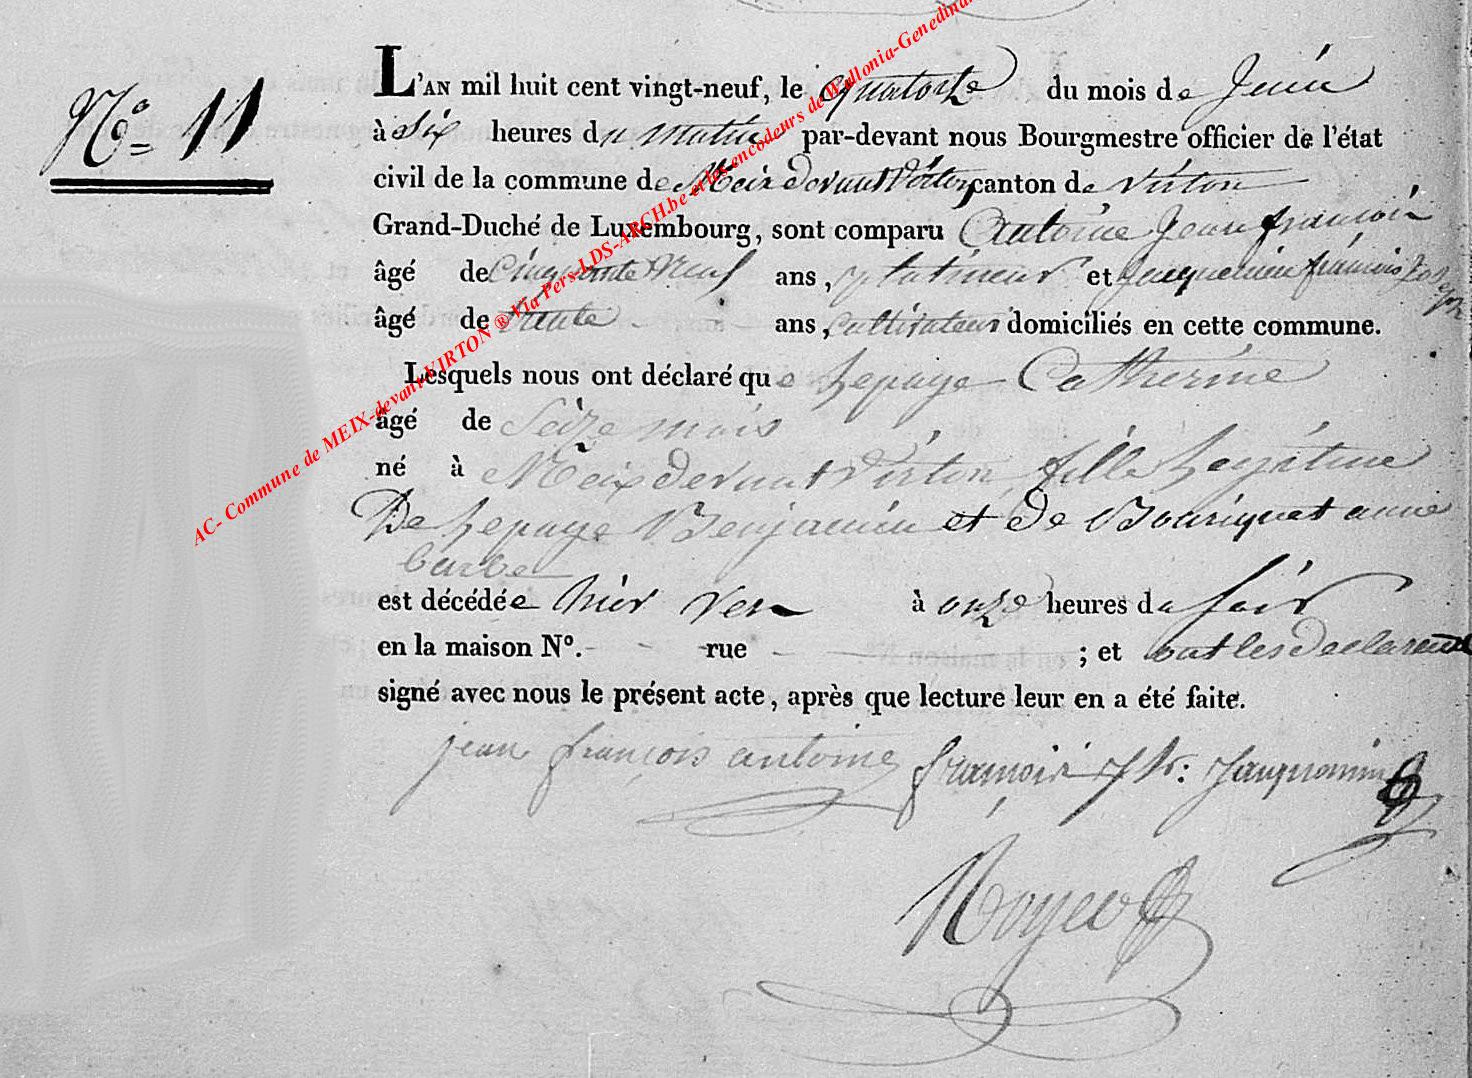 Nº 11
L'AN mil huit cent vingt-neuf, le quatorze du mois de Juin
à six heures du matin par-devant nous Bourgmestre officier de l'état
civil de la commune de Meix devant Virton, canton de Virton
Grand-Duché de Luxembourg, sont comparu Antoine Jean françois
âgé de Cinquante Neuf ans, platineur et Jacquemin françois Joseph
âgé de trente ans, cultivateur domiciliés en cette commune.
Lesquels nous ont déclaré que Lepage Catherine
âgé de Seize mois
né à Meix devant Virton fille Legitime
De Lepage Benjamin et de Bouriquet anne
barbe
est décédée hier vers à onze heures du soir
en la maison Nº. - - rue - ; et ont les declarants
signé avec nous le présent acte, après que lecture leur en a été faite.
jean françois antoine françois Jh: Jacquemin
AC- Commune de MEIX-devant-VIRTON ® Via Pers-LDS-ARCH.be et les encodeurs de Wallonia-Genedina